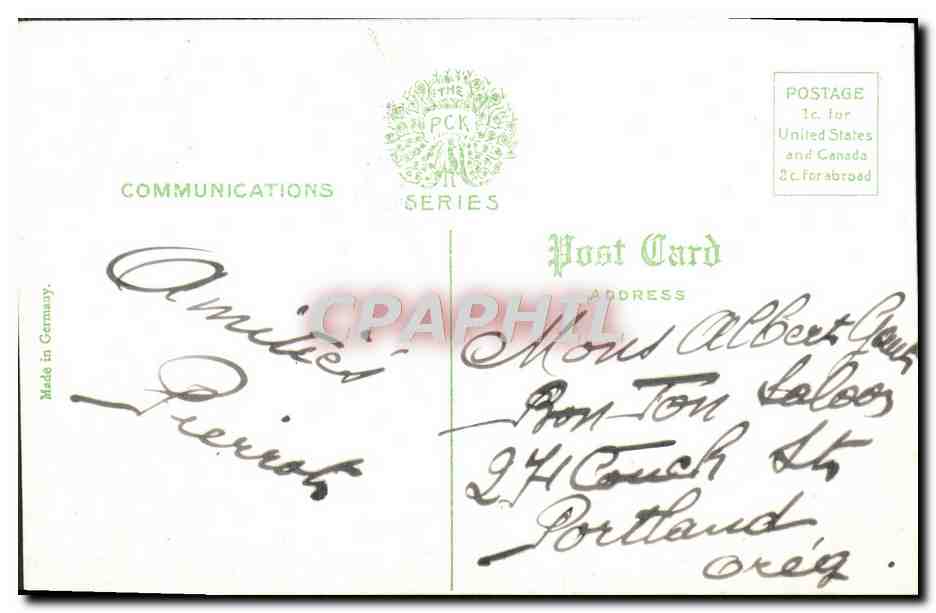 THE
PCK
SERIES
COMMUNICATIONS
POSTAGE
1c. for
United States
and Canada
2c. for abroad
Post Card
ADDRESS
Made in Germany.
Amitiés
Pierrot
Mons Albert
Bon Ton Saloon
271 Couch St,
Portland
Orég.
CPAPHIL